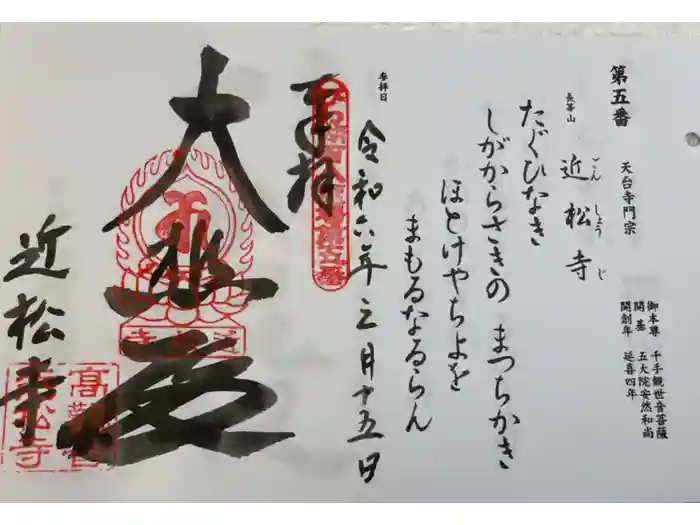 第五番 天台寺門宗
長等山 近松寺
ごん しょう じ
御本尊 千手観世音菩薩
開基 五大院安然和尚
開創年 延喜四年
たぐひなき
しがからさきの まつちかき
ほとけやちよを
まもるなるらん
参拝日
令和六年三月十五日
奉拝
大悲殿
近松寺
高観音
近松寺